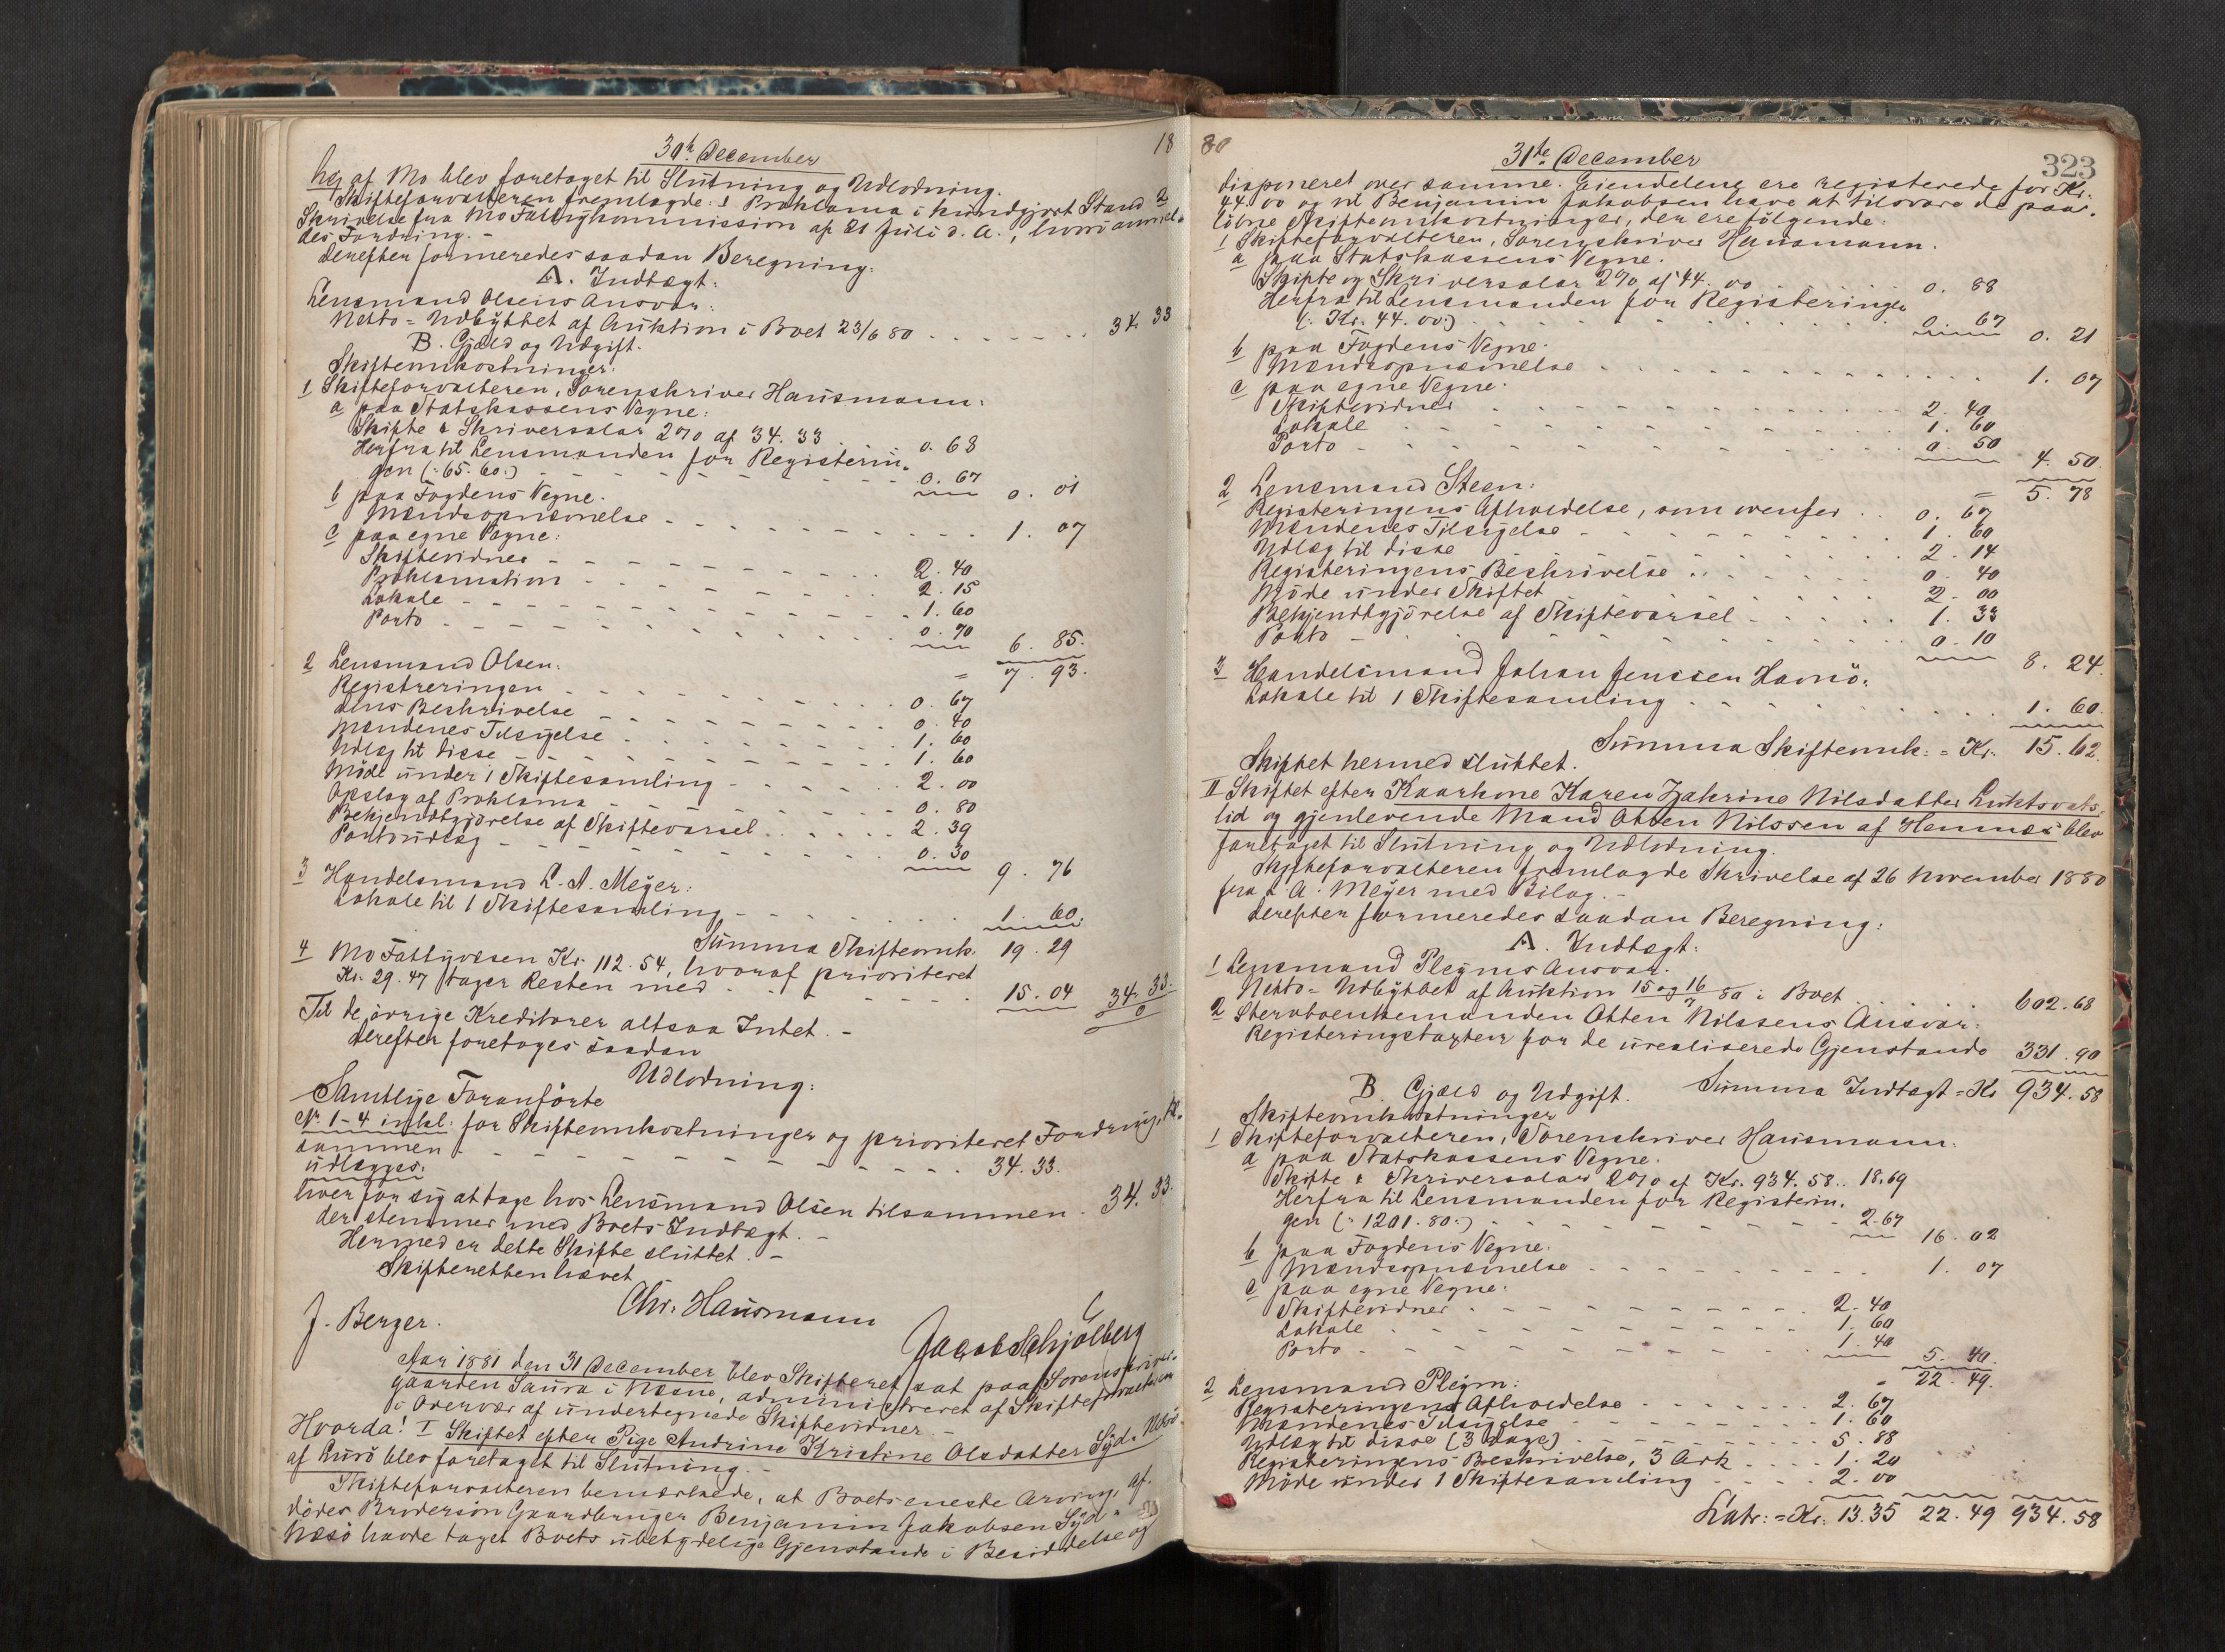 30te December
18
høj af Mo blev foretaget til Slutning og Udlodning.
Skifteforvalteren fremlagde: 1 Proklama i kundgjort Stand 2
Skrivelse fra Mo Fattigkommission af 21 Juli d. A., hvori anmel-
des Fordring. -
Derefter formeredes saadan Beregning:
A. Indtægt:
Lensmand Olsens Ansvar:
Netto-Udbyttet af Auktion i Boet 23/6 80 . . . . 34 33
B. Gjæld og Udgift.
Skifteomkostninger:
1 Skifteforvalteren, Sorenskriver Hausmann:
a paa Statskassens Vegne:
Skifte & Skriversalær 2% af 34.33 . . . 0. 68
Herfra til Lensmanden for Registerin-
gen (: 65.60:) - - - 0. 67 0. 01
b paa Fogdens Vegne.
Mændsopnævnelse - - - 1. 07
c paa egne Vegne:
Skiftevidner - - - 2. 40
Proklamation - - - 2. 15
Lokale - - - 1. 60
Porto - - - 0. 70 6. 85.
= 7. 93.
2 Lensmand Olsen:
Registreringen - - - 0. 67
dens Beskrivelse - - - 0. 40
Mændenes Tilsigelse - - - 1. 60
Udlæg til disse - - - 1. 60
Møde under 1 Skiftesamling - - - 2. 00
Opslag af Proklama - - - 0. 80
Bekjendtgjørelse af Skiftevarsel . . . 2. 39
Portoudlæg - - - 0. 30 9. 76
3 Handelsmand L. A. Meyer:
Lokale til 1 Skiftesamling - - - 1. 60.
Summa Skifteomk. 19. 29
4 Mo Fattigvæsen Kr. 112.54, hvoraf prioriteret
Kr. 29.47 tager Resten med - - - 15. 04 34. 33.
Til de øvrige Kreditorer altsaa Intet. - 0
Derefter foretoges saadan
Udlodning:
Samtlige Foranførte
No 1-4 inkl. for Skifteomkostninger og prioriteret Fordring, til-
sammen - - - 34. 33.
udlægges:
hver for sig at tage hos Lensmand Olsen tilsammen - 34. 33.
der stemmer med Boets Indtægt. -
Hermed er dette Skifte sluttet. -
Skifteretten hævet
Chr. Hausmann
J. Berger.
Jacob Schjelberg
Aar 1881 den 31 December blev Skifteret sat paa Sorenskriver-
gaarden Saura i Næsne, administreret af Skifteforvalteren
i Overvær af undertegnede Skiftevidner. -
Hvorda! I Skiftet efter Pige Andrine Kristine Olsdatter Syd-Næsø
af Lurø blev foretaget til Slutning. -
Skifteforvalteren bemærkede, at Boets eneste Arving, af-
dødes Brodersøn Gaardbruger Benjamin Jakobsen Syd-
Næsø havde taget Boets ubetydelige Gjenstande i Besiddelse og
80
31te December
323
disponeret over samme. Eiendelene ere registerede for Kr.
44.00 og vil Benjamin Jakobsen have at tilsvare de paa-
løbne Skifteomkostninger, der ere følgende:
1 Skifteforvalteren, Sorenskriver Hausmann.
a paa Statskassens Vegne.
Skifte og Skriversalær 2% af 44.00 . . . 0. 88
Herfra til Lensmanden for Registeringen
(: Kr. 44.00:) . . . 0. 67 0. 21
b paa Fogdens Vegne.
Mændsopnævnelse . . . 1. 07
c paa egne Vegne.
Skiftevidner . . . 2. 40
Lokale - - - 1. 60
Porto - - - 0. 50 4. 50.
= 5. 78
2 Lensmand Steen:
Registeringens Afholdelse, som ovenfor . . 0. 67
Mændenes Tilsigelse - - - 1. 60
Udlæg til disse . . . 2. 14
Registeringens Beskrivelse . . . 0. 40
Møde under Skiftet . . . 2. 00
Bekjendtgjørelse af Skiftevarsel . . . 1. 33
Porto - - - 0. 10 8. 24.
3 Handelsmand Johan Jenssen Havnø:
Lokale til 1 Skiftesamling . . . 1. 60.
Summa Skifteomk: = Kr. 15.62.
Skiftet hermed sluttet.
II Skiftet efter Kaarkone Karen Zakrine Nilsdatter Luktvats-
lid og gjenlevende Mand Otten Nilssen af Hemnes blev
foretaget til Slutning og Udlodning.
Skifteforvalteren fremlagde Skrivelse af 26 November 1880
fra L. A. Meyer med Bilag. -
Derefter formeredes saadan Beregning:
A. Indtægt:
1 Lensmand Pleyms Ansvar.
Netto-Udbyttet af Auktion 15 og 16/7 80 i Boet . . . 602.68
2 Stervboenkemanden Otten Nilssens Ansvar:
Registeringstaxten for de urealiserede Gjenstande 331.90
Summa Indtægt = Kr 934.58
B. Gjæld og Udgift.
Skifteomkostninger
1 Skifteforvalteren, Sorenskriver Hausmann.
a paa Statskassens Vegne.
Skifte & Skriversalær 2% af Kr. 934.58.. 18.69
Herfra til Lensmanden for Registerin-
gen (: 1201.80:) - - - 2.67 16. 02
b paa Fogdens Vegne.
Mændsopnævnelse - - - 1. 07
c paa egne Vegne.
Skiftevidner . . . 2. 40
Lokale - - - 1. 60
Porto - - - 1. 40 5. 40.
= 22. 49.
2 Lensmand Pleym:
Registeringens Afholdelse . . . 2. 67
Mændenes Tilsigelse - - - 1. 60
Udlæg til disse (3 Dage) - - - 5. 88
Registeringens Beskrivelse, 3 Ark . . . 1. 20
Møde under 1 Skiftesamling - - - 2. 00
Latr: = Kr. 13.35 22. 49 934. 58